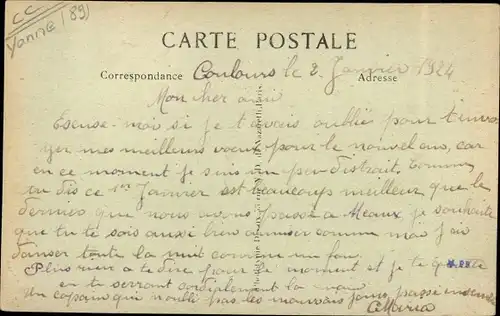 CC
Yonne (89)
CARTE POSTALE
Correspondance Adresse
Coulours le 2 Janvier 1924
Mon cher ami
Escuse-moi si je t'avais oublié pour t'envo
yer mes meilleurs voeux pour le nouvel an, car
en ce moment je suis un peu distrait. Comme
tu dis ce 1er Janvier est beaucoup meilleur que le
dernier que nous avons passé a Meaux je souhaite
que tu te sois aussi bien amuser comme moi j'ai
danser toute la nuit comme un fou.
Plus rien a te dire pour le moment et je te quitte
en te serrant cordialement la main
Un copain qui oublie pas les mauvais jours passé ensemble